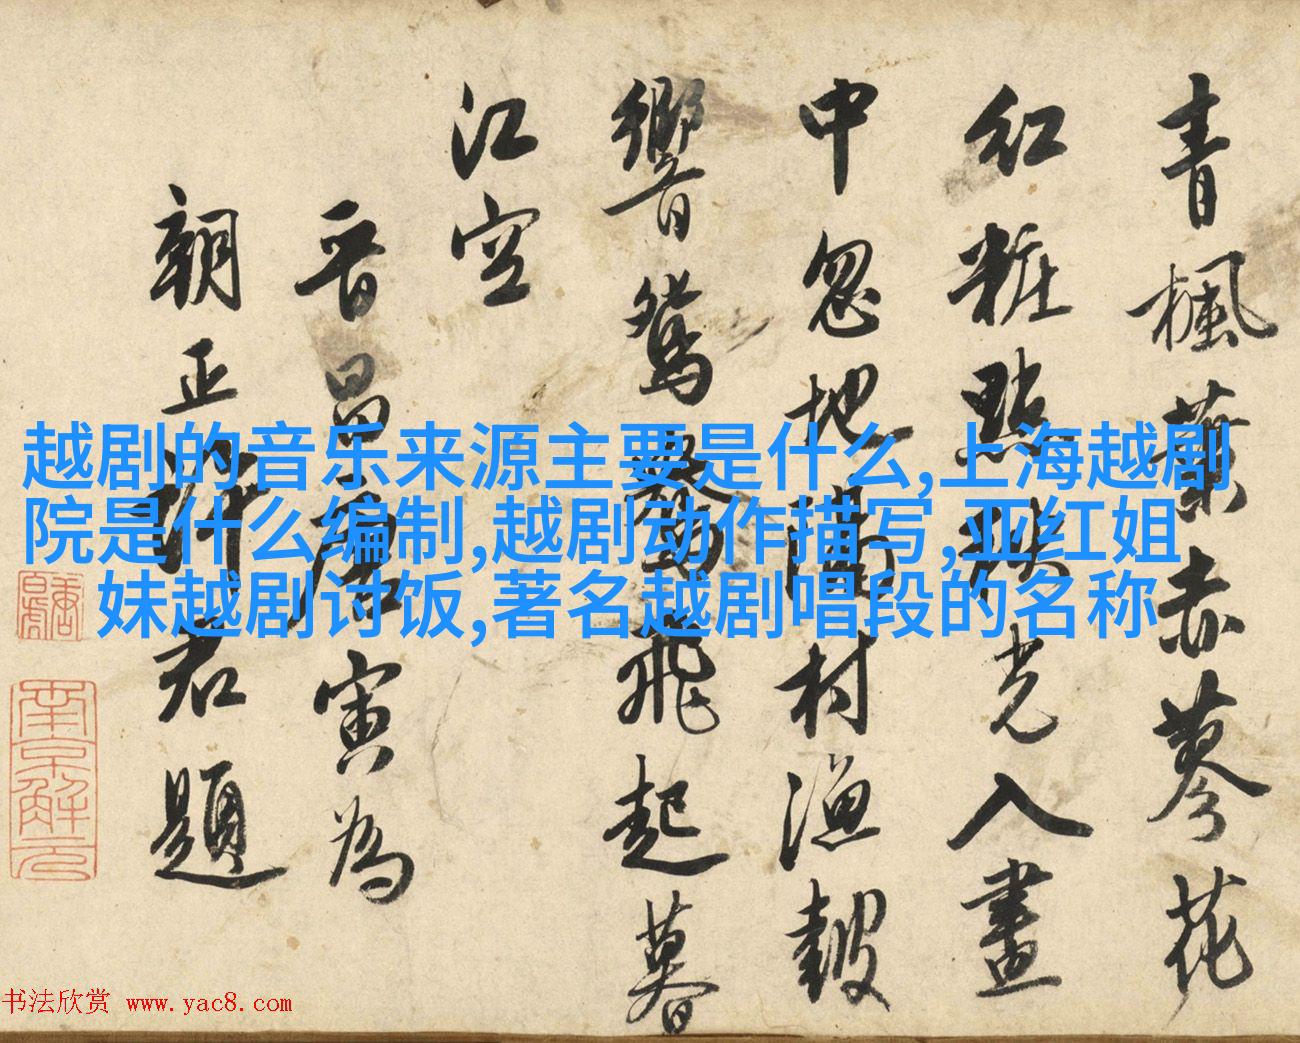 青楓葉赤蓼花
紅粧點秋光入畫
中忽地村漁皷
響驚飛起暮
江空
晋昌唐寅為
朝正許君題
南京解元
越剧的音乐来源主要是什么,上海越剧
院是什么编制,越剧动作描写,亚红姐
妹越剧讨饭,著名越剧唱段的名称
书法欣赏 www.yac8.com